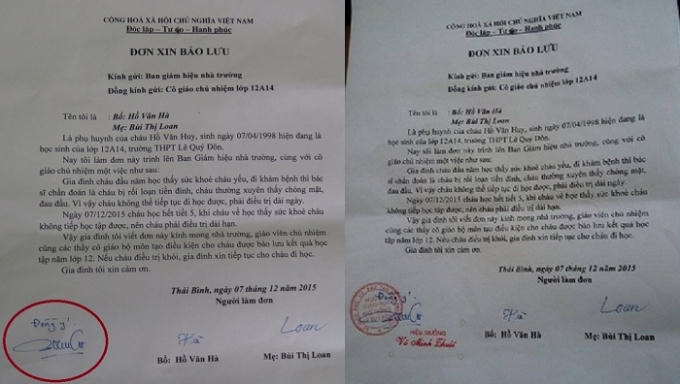 CỘNG HOÀ XÃ HỘI CHỦ NGHĨA VIỆT NAM
Độc lập – Tự do – Hạnh phúc
ĐƠN XIN BẢO LƯU
Kính gửi: Ban giám hiệu nhà trường
Đồng kính gửi: Cô giáo chủ nhiệm lớp 12A14
Tên tôi là : Bố: Hồ Văn Hà
Mẹ: Bùi Thị Loan
Là phụ huynh của cháu Hồ Văn Huy, sinh ngày 07/04/1998 hiện đang là
học sinh của lớp 12A14, trường THPT Lê Quý Đôn.
Nay tôi làm đơn này trình lên Ban Giám hiệu nhà trường, cùng với cô
giáo chủ nhiệm một việc như sau:
Gia đình cháu đầu năm học thấy sức khoẻ cháu yếu, đi khám bệnh thì bác
sĩ chẩn đoán là cháu bị rối loạn tiền đình, cháu thường xuyên thấy chóng mặt,
đau đầu. Vì vậy cháu không thể tiếp tục đi học được, phải điều trị dài ngày.
Ngày 07/12/2015 cháu học hết tiết 5, khi cháu về học thấy sức khoẻ cháu
không tiếp học tập được, nên cháu phải điều trị dài hạn.
Vậy gia đình tôi viết đơn này kính mong nhà trường, giáo viên chủ nhiệm
cùng các thầy cô giáo bộ môn tạo điều kiện cho cháu được bảo lưu kết quả học
tập năm lớp 12. Nếu cháu điều trị khỏi, gia đình xin tiếp tục cho cháu đi học.
Gia đình tôi xin cảm ơn.
Thái Bình, ngày 07 tháng 12 năm 2015
Người làm đơn
Đồng ý
Hà
Loan
Bố: Hồ Văn Hà
Mẹ: Bùi Thị Loan
CỘNG HOÀ XÃ HỘI CHỦ NGHĨA VIỆT NAM
Độc lập – Tự do – Hạnh phúc
ĐƠN XIN BẢO LƯU
Kính gửi: Ban giám hiệu nhà trường
Đồng kính gửi: Cô giáo chủ nhiệm lớp 12A14
Tên tôi là : Bố: Hồ Văn Hà
Mẹ: Bùi Thị Loan
Là phụ huynh của cháu Hồ Văn Huy, sinh ngày 07/04/1998 hiện đang là
học sinh của lớp 12A14, trường THPT Lê Quý Đôn.
Nay tôi làm đơn này trình lên Ban Giám hiệu nhà trường, cùng với cô
giáo chủ nhiệm một việc như sau:
Gia đình cháu đầu năm học thấy sức khoẻ cháu yếu, đi khám bệnh thì bác
sĩ chẩn đoán là cháu bị rối loạn tiền đình, cháu thường xuyên thấy chóng mặt,
đau đầu. Vì vậy cháu không thể tiếp tục đi học được, phải điều trị dài ngày.
Ngày 07/12/2015 cháu học hết tiết 5, khi cháu về học thấy sức khoẻ cháu
không tiếp học tập được, nên cháu phải điều trị dài hạn.
Vậy gia đình tôi viết đơn này kính mong nhà trường, giáo viên chủ nhiệm
cùng các thầy cô giáo bộ môn tạo điều kiện cho cháu được bảo lưu kết quả học
tập năm lớp 12. Nếu cháu điều trị khỏi, gia đình xin tiếp tục cho cháu đi học.
Gia đình tôi xin cảm ơn.
Thái Bình, ngày 07 tháng 12 năm 2015
Người làm đơn
Đồng ý
Hà
Loan
HIỆU TRƯỞNG
Vũ Minh Thuết
Bố: Hồ Văn Hà
Mẹ: Bùi Thị Loan